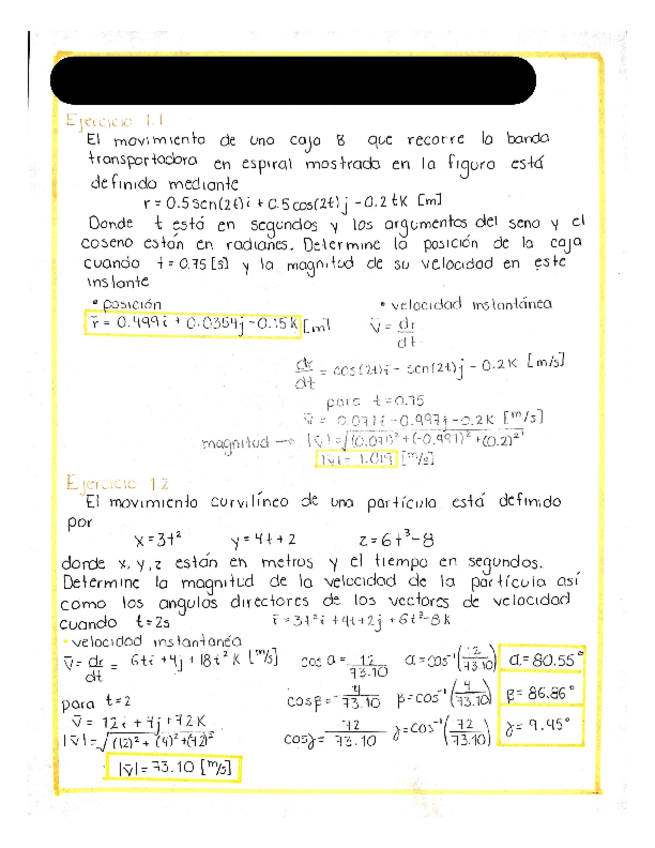 Ejercicio 1.1
El movimiento de una caja B que recorre la banda
transportadora en espiral mostrada en la figura está
definido mediante
r = 0.5 sen(2t)i + 0.5 cos(2t)j - 0.2tK [m]
Donde t está en segundos y los argumentos del seno y el
coseno están en radianes. Determine la posición de la caja
cuando t = 0.75 [s] y la magnitud de su velocidad en este
instante
• posición
r̄ = 0.499i + 0.0354j - 0.15K [m]
• velocidad instantánea
v̄ = dr
dt
dr = cos(2t)i - sen(2t)j - 0.2K [m/s]
dt
para t = 0.75
v̄ = 0.071i - 0.997j - 0.2K [m/s]
magnitud → |v̄| = √(0.071)² + (-0.997)² + (0.2)²
|v̄| = 1.019 [m/s]
Ejercicio 1.2
El movimiento curvilíneo de una partícula está definido
por
x = 3t² y = 4t + 2 z = 6t³ - 8
donde x, y, z están en metros y el tiempo en segundos.
Determine la magnitud de la velocidad de la partícula así
como los angulos directores de los vectores de velocidad
cuando t = 2s r̄ = 3t²i + 4t + 2j + 6t³ - 8K
• velocidad instantanea
v̄ = dr = 6ti + 4j + 18t²K [m/s]
dt
para t = 2
v̄ = 12i + 4j + 72K
|v̄| = √(12)² + (4)² + (72)²
|v̄| = 73.10 [m/s]
cos α = 12/73.10 α = cos⁻¹(12/73.10) α = 80.55°
cos β = 4/73.10 β = cos⁻¹(4/73.10) β = 86.86°
cos γ = 72/73.10 γ = cos⁻¹(72/73.10) γ = 9.45°